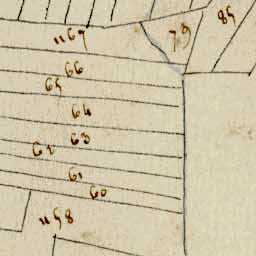 85
79
1167
66
65
64
63
62
61
60
1158